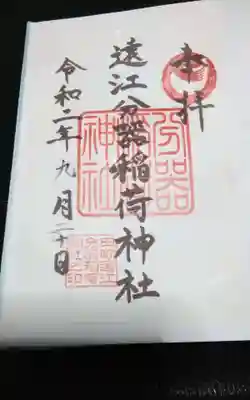 奉拝
遠江分器稲荷神社
令和二年九月二十日
分器
神社